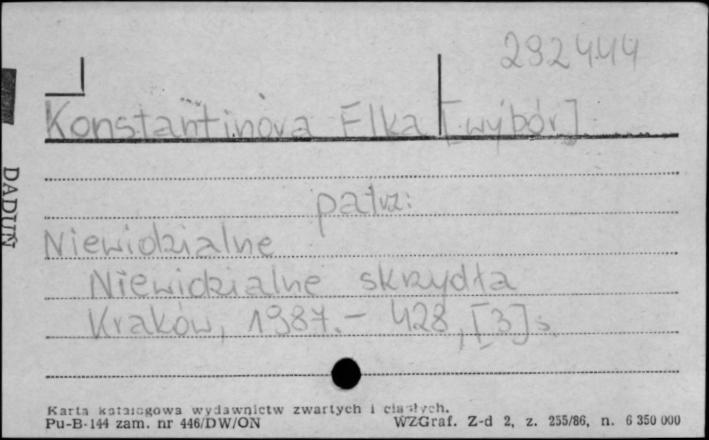 292444
Konstantinova Elka [wybór]
patrz:
Niewidzialne
Niewidzialne skrzydła
Kraków, 1987. – 428, [3] s.
DADUN
Karta katalogowa wydawnictw zwartych i ciągłych.
Pu-B-144 zam. nr 446/DW/ON WZGraf. Z-d 2, z. 255/86, n. 6 350 000